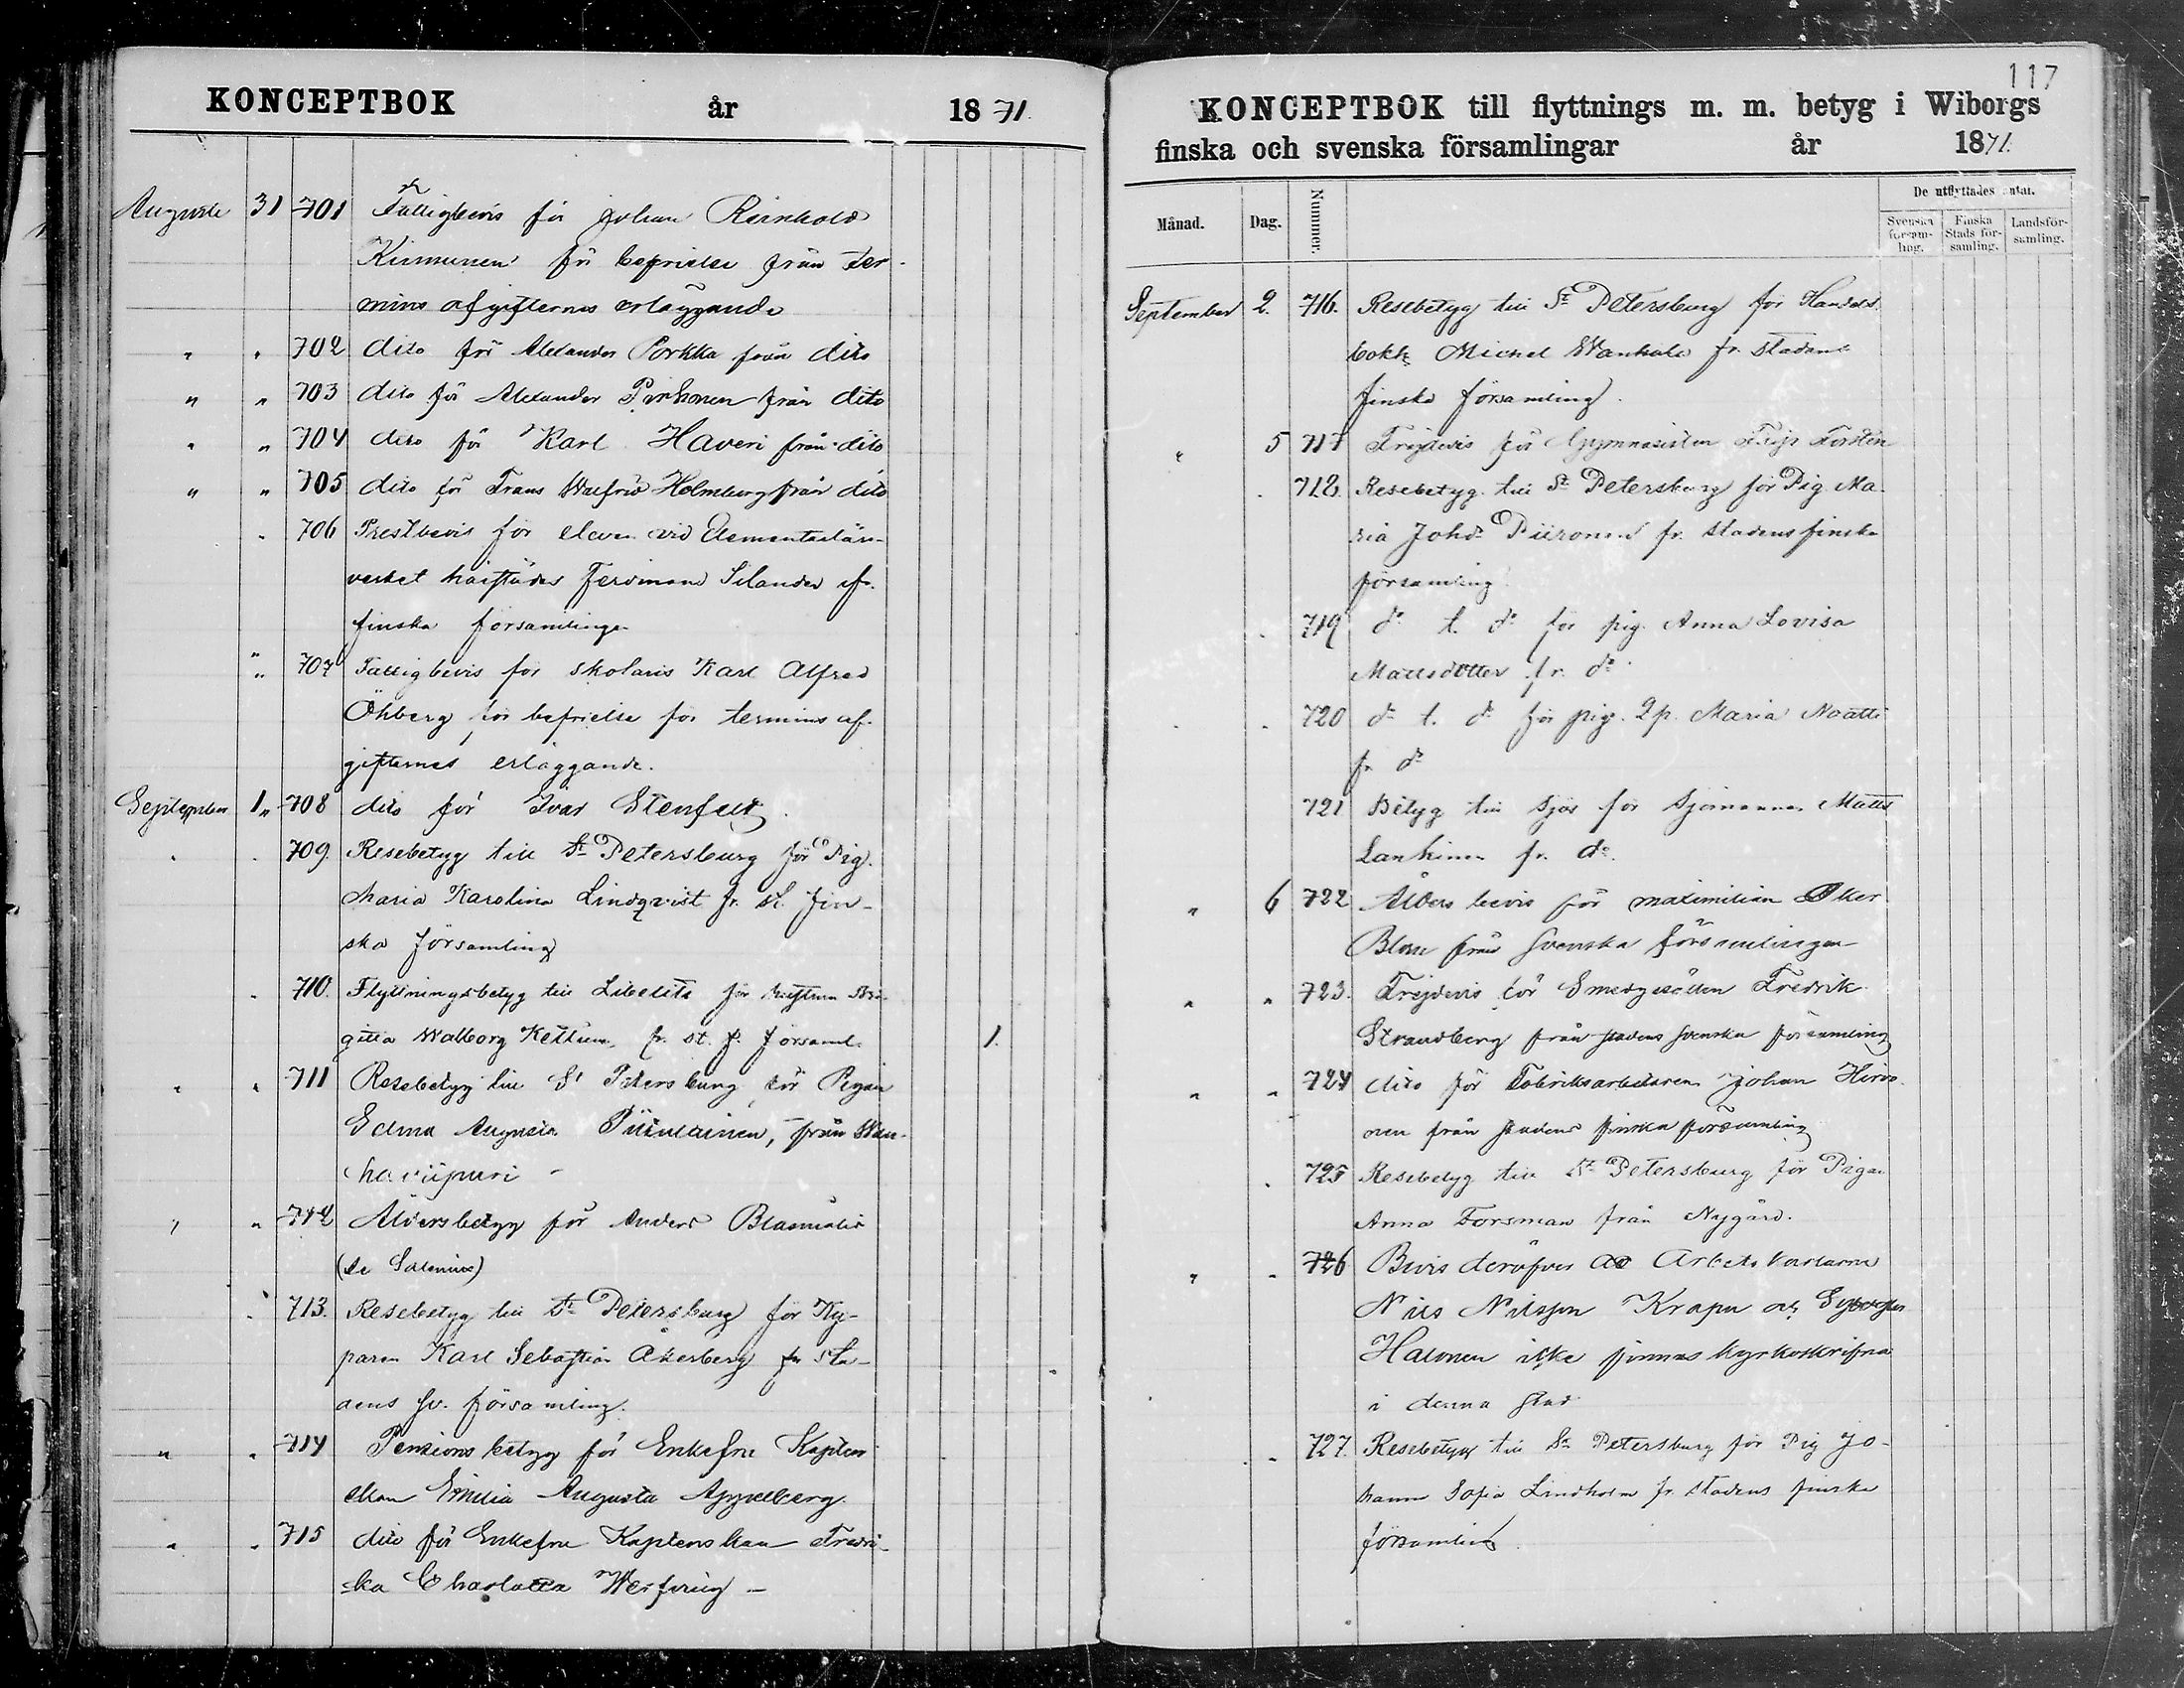 KONCEPTBOK år 1871.
Augusti 31 701 Fattigbevis för Johan Reinhold
Kinnunen för befrielse från ter-
mins afgifternas erläggande
" " 702 dito för Alexander Porkka från dito
" " 703 dito för Alexander Pinhonen från dito
" " 704 dito för Karl Haveri från dito
" " 705 dito för Frans Walfrid Holmberg från dito
" 706 Prestbevis för eleven vid Elementarlär-
verket härstädes Ferdinand Silander fr.
finska församlingen
" 707 Fattigbevis för skolaris Karl Alfred
Öhberg för befrielse för termins af-
gifternas erläggande.
September 1 " 708 dito för Ivar Stenfelt.
" " 709. Resebetyg till St Petersburg för Pig.
Maria Karolina Lindqvist fr. st. fin-
ska församling
" 710. Flyttningsbetyg till Libelits för hustrun Bri-
gitta Walborg Kettunen fr. st. f. församl. 1.
" " 711 Resebetyg till St Petersburg för Pigan
Edma Augusta Piiulainen, från Wan-
haviipuri -
" " 712 Åldersbetyg för Anders
(de Salenius)
" 713. Resebetyg till St Petersburg för Ky-
paren Karl Sebastian Åkerberg fr sta-
dens sv. församling.
" " 714 Pensions betyg för Enkefru Kapten-
skan Emilia Augusta Appelberg.
" " 715 dito för Enkefru Kaptenskan Fredri-
ka Charlotta
117
KONCEPTBOK till flyttnings m. m. betyg i Wiborgs
finska och svenska församlingar år 1871.
Månad. Dag. Nummer. De utflyttades antal.
Svenska församling. Finska Stads församling. Landsförsamling.
September 2. 716. Resebetyg till St Petersburg för Handels
bokh Michel Wanhala fr. stadens
finska församling.
" 5 717 Frejdevis för Gymnasisten Torstén
" 718. Resebetyg till St Petersburg för Pig. Ma-
ria Johd Piironen fr. stadens finska
församling
" 719 do t. do för pig. Anna Lovisa
Mattsdotter fr. do
" " 720 do t. do för pig. Maria Naatti
fr do
721 Betyg till sjös för sjömannen Matts
Lankinen fr. do.
" 6 722 Ålders bevis för Maximilian Osker
Blom från svenska församlingen
" " 723. Frejdevis för Smedgesällen Fredrik
Strandberg från stadens svenska församling
" " 724 dito för Fabriksarbetaren Johan Hirvo
nen från stadens finska församling
" 725 Resebetyg till St Petersburg för Pigan
Anna Forsman från Nygård.
" " 726 Bevis deröfver att Arbets karlarne
Nils Nilsson Krapu och
Halonen icke finnas kyrkoskrifna
i denna stad
" 727. Resebetyg till St Petersburg för Pig Jo-
hanna Sofia Lindholm fr. stadens finska
församling.